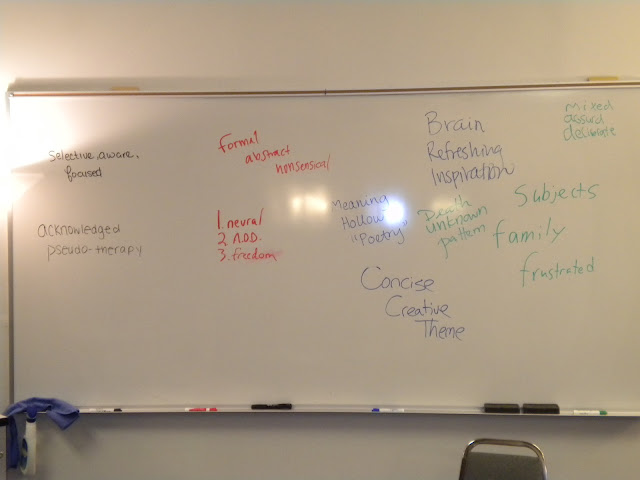 selective, aware,
focused
acknowledged
pseudo-therapy
formal
abstract
nonsensical
1. neural
2. A.D.D.
3. freedom
Meaning
Hollow
"Poetry"
Brain
Refreshing
Inspiration
Concise
Creative
Theme
Death
unknown
pattern
mixed
assurd
deliberate
Subjects
family
frustrated